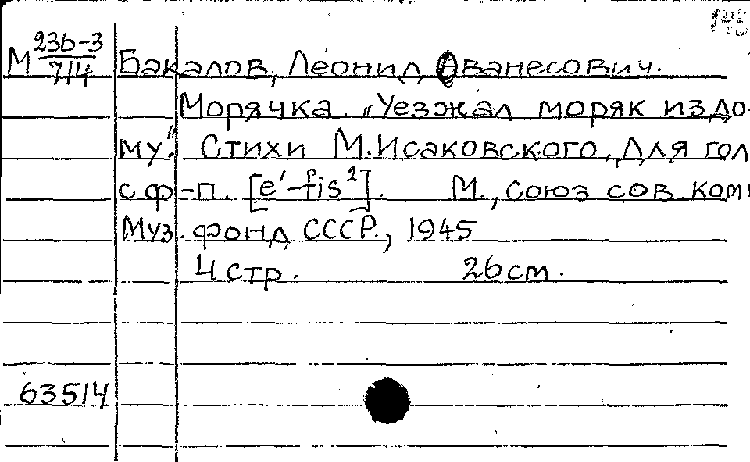 М 23б-3/714 Бакалов, Леонид Ованесович.
Морячка. „Уезжал моряк из до-
му." Стихи М.Исаковского, Для гол
с ф-п. [e'-fis²]. М., Союз сов комп
Муз. фонд СССР., 1945
4 стр. 26 см.
63514